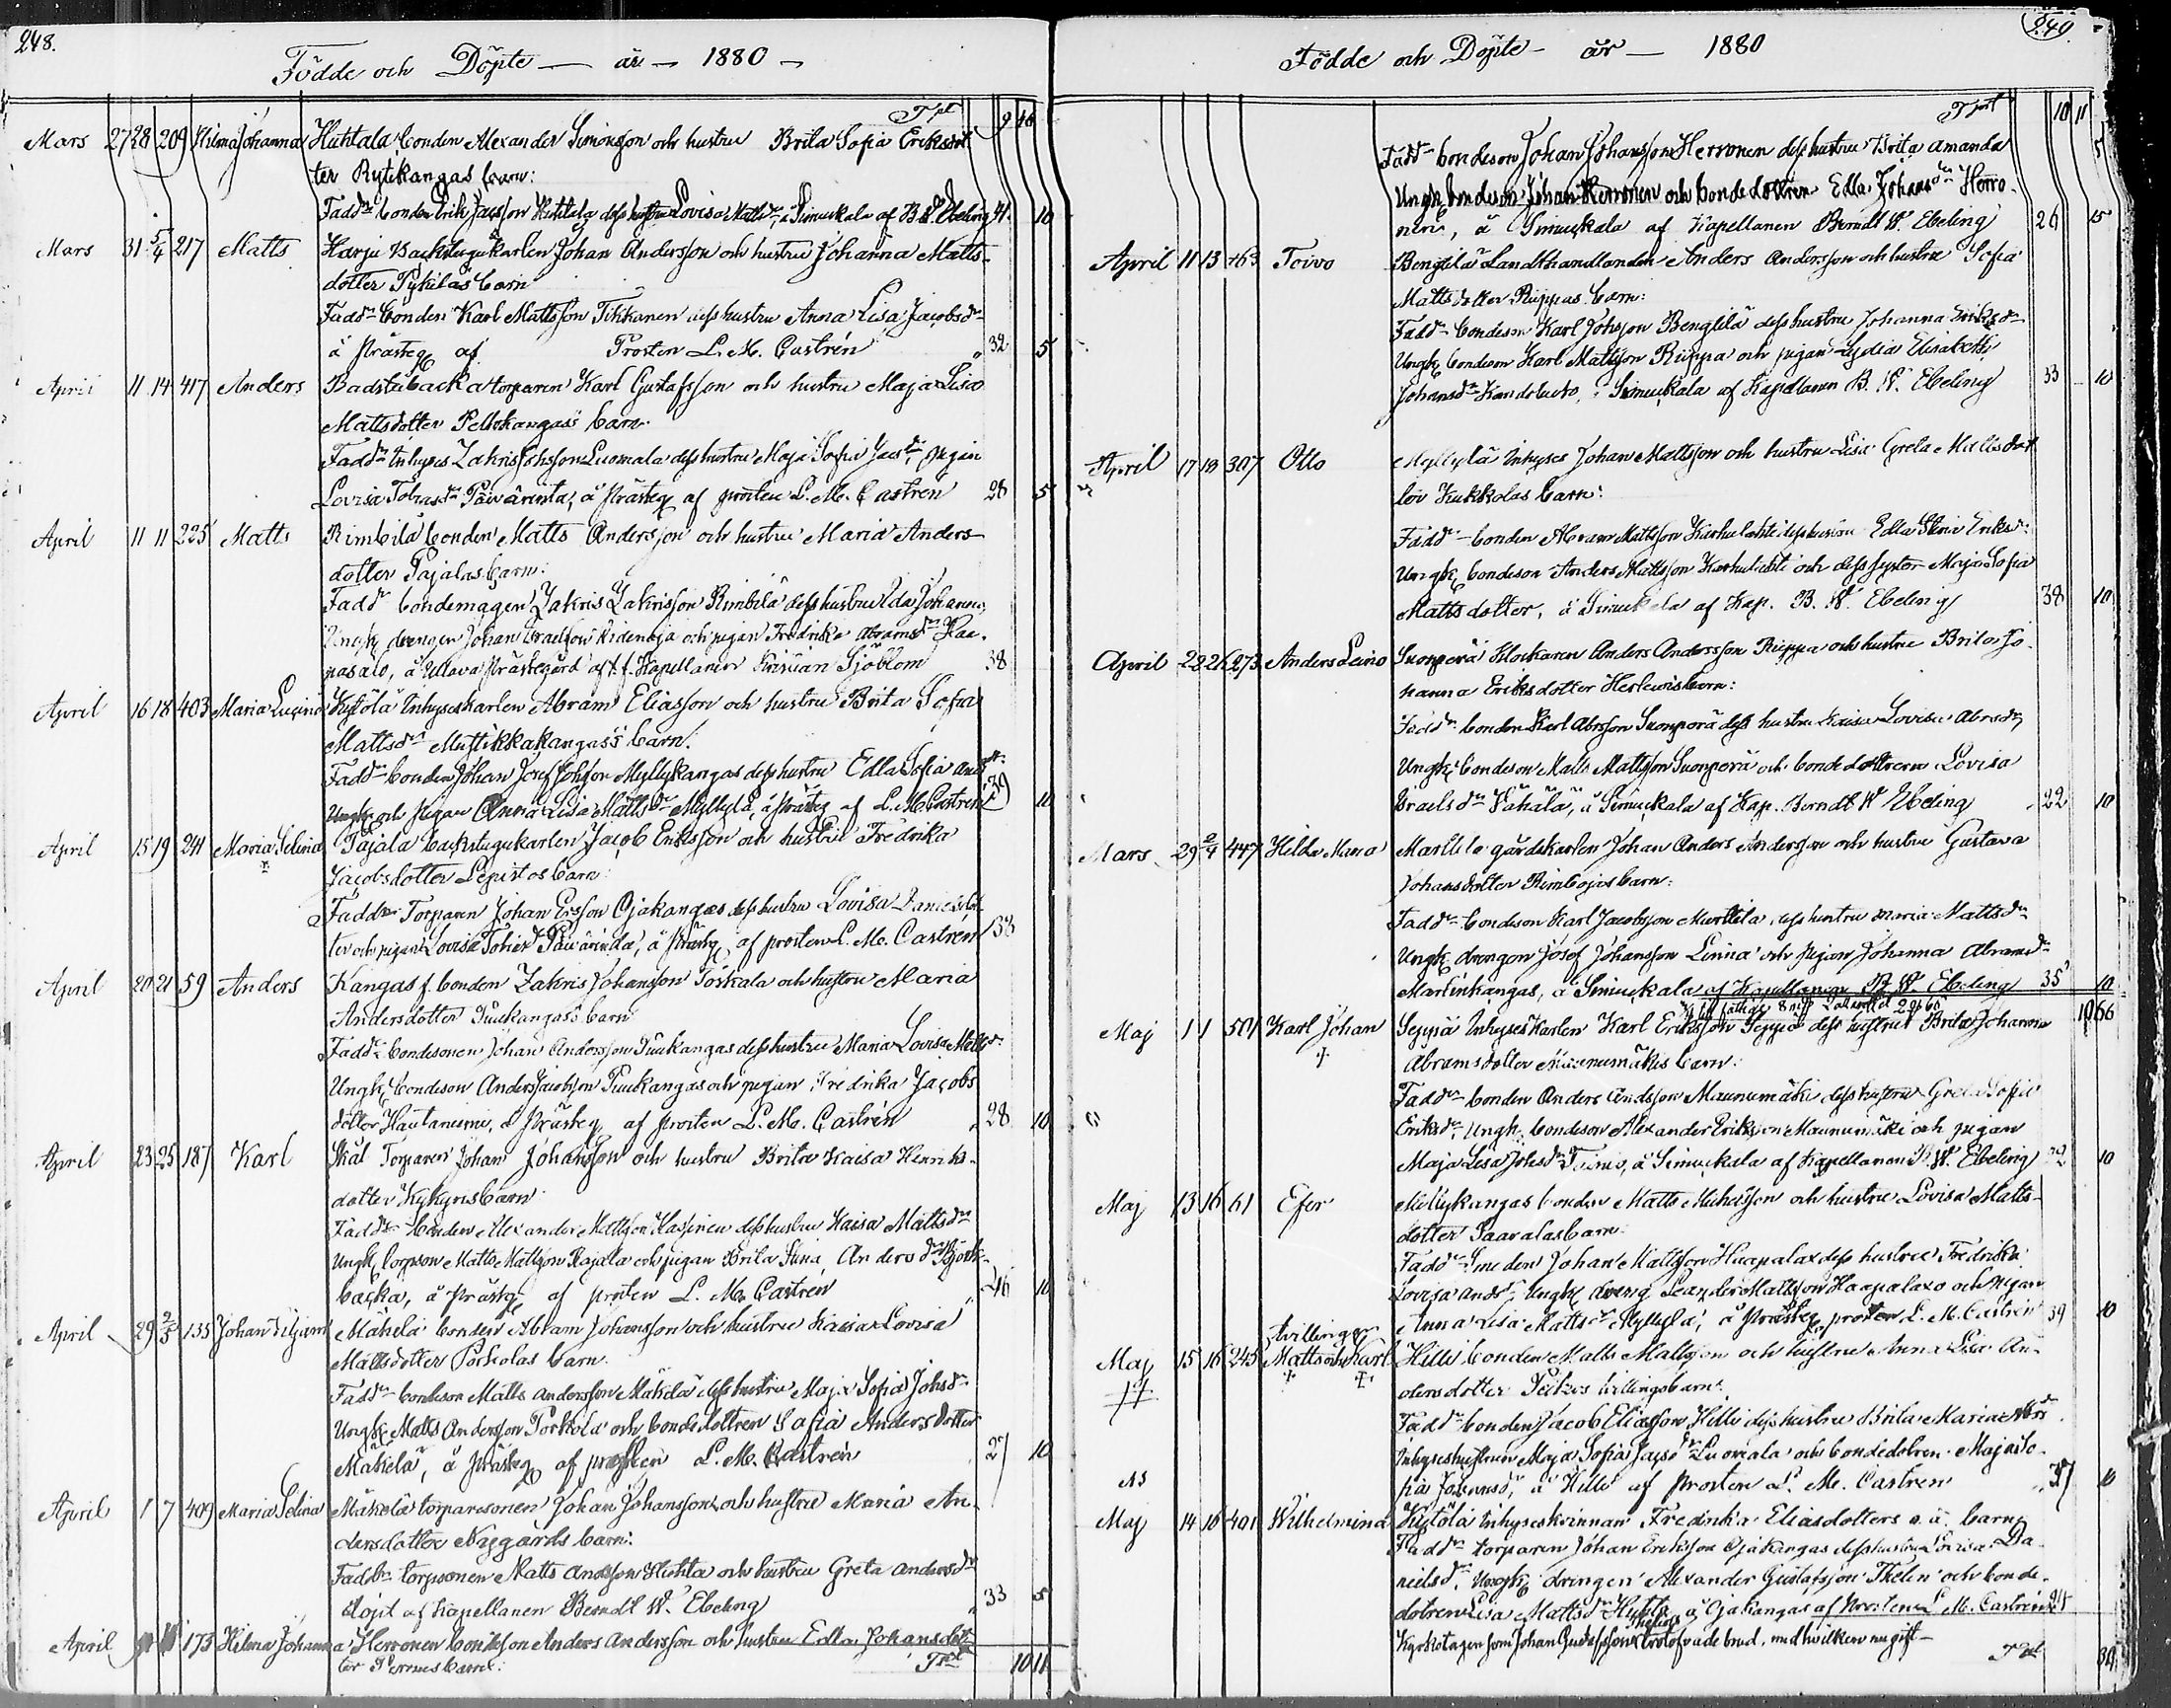 248.
Födde och Döpte — år — 1880 —
Tpt 9 10
Mars 27 28 209 Hilma Johanna Huhtala bonden Alexander Simonsson och hustru Brita Sofia Eriksdot
ter Rytikangas barn:
Fadd:r bonden Erik Jacsson Huhtala dess hustru Lovisa Mattsdr, å Simuckala af B W Ebeling 41. 10
Mars 31 5/4 217 Matts Harju Backstugukarlen Johan Andersson och hustru Johanna Matts-
dotter Pykiläs barn
Fadd:r bonden Karl Mattsson Tikkanen dess hustru Anna Lisa Jacobsdr
å Prästeg af Prosten L. M. Castrén 32 5
April 11 14 417 Anders Badstubacka torparen Karl Gustafsson och hustru Maja Lisa
Mattsdotter Peltokangas' barn.
Fadd:r Inhyses Zakris Johsson Luomala dess hustru Maja Sofia Jacdr, pigan
Lovisa Tobiasdr Päivärinta, å Prästeg af prosten L. M. Castrén 28 5
April 11 11 225 Matts Rimbilä bonden Matts Andersson och hustru Maria Anders-
dotter Pajalas barn:
Faddr bondemågen Zakris Zakrisson Rimbilä dess hustru Ida Johanna,
Ungk drengen Johan Israelsson och pigan Fredrika Abramsdr Haa-
pasalo, å Ullava Prästegård af t.f. Kapellanen Kristian Sjöblom 38
April 16 18 403 Maria Lucina Kytölä Inhyseskarlen Abram Eliasson och hustru Brita Sofia
Mattsdr Mustikkakangas's barn.
Faddr bonden Johan Josef Johsson Myllykangas dess hustru Edla Sofia Andsdr:
Ungk och pigan Anna Lisa Mattsdr Myllylä, å Prästeg af L. M. Castrén 39 10
April 15 19 241 Maria Selina Pajala backstugukarlen Jacob Eriksson och hustru Fredrika
Jacobsdotter Lepistos barn:
Faddr Torparen Johan Ersson Ojakangas dess hustru Lovisa Danielsdot
ter och pigan Lovisa Tobiasdr Päivärinta, å Prästg af prosten L. M. Castrén 33
April 20 21 59 Anders Kangas f. bonden Zakris Johansson Torkala och hustru Maria
Andersdotter Puukangas's barn
Faddr bondesonen Johan Andersson Puukangas dess hustru Maria Lovisa Mattsdr:
Ungk, bondeson Anders Jacobsson Puukangas och pigan Fredrika Jacobs
dotter Hautaniemi, å Prästeg af prosten L. M. Castrén 28 10
April 23 25 187 Karl Skål Torparen Johan Johansson och hustru Brita Kaisa Henriks-
dotter Kykyris barn:
Faddr bonden Alexander Mattsson Kaspinen dess hustru Kaisa Mattsdr
Ungk torpson Matts Mattsson Rajala och pigan Brita Stina Andersdr Björk-
backa, å Prästg af prosten L. M. Castrén 46 10
April 29 2/5 135 Johan Viljam Mäkelä bonden Abram Johansson och hustru Kaisa Lovisa
Mattsdotter Porkolas barn.
Faddr bondeson Matts Andersson Mäkelä dess hustru Maja Sofia Johsdr
Ungk Matts Andersson Porkola och bondedottren Sofia Andersdotter
Mäkelä, å Prästeg af prosten L. M. Castrén 27 10
April 1 7 409 Maria Selina Mäkelä torparesonen Johan Johansson och hustru Maria An-
dersdotter Nygårds barn:
Faddr torpsonen Matts Andsson Huhta och hustru Greta Andersdr
döpt af Kapellanen Berndt W. Ebeling 33 5
April 173 Hilma Johanna Herronen bondeson Anders Andersson och hustru Edla Johansdot-
ter barn: Tpt 10 11
249.
Födde och Döpte — år — 1880
Tprt 10 11
Faddr bondeson Johan Johansson Herronen dess hustru Brita Amanda 5
Ungk bondeson Johan Herronen och bondedottren Edla Johansdr Herro-
nen, å Simuckala af Kapellanen Berndt W. Ebeling 26 15
April 11 13 463 Toivo Bengtilä Landthandlanden Anders Andersson och hustru Sofia
Mattsdotter Riippas barn:
Faddr bondeson Karl Johsson Bengtilä dess hustru Johanna Eriksdr
Ungk bondeson Karl Mattsson Riippa och pigan Lydia Elisabeth
Johansdr, å Simuckala af Kapellanen B. W. Ebeling 33 10
April 17 18 307 Otto Myllylä Inhyses Johan Mattsson och hustru Lisa Greta Mattsdot
ter Kukkolas barn:
Faddr bonden Abram Mattsson Karhulahti dess hustru Edla Stina Eriksdr:
Ungk, bondeson Anders Mattsson Karhulahti och dess syster Maja Sofia
Mattsdotter, å Simuckala af Kap. B. W. Ebeling 38 10
April 22 26 273 Anders Leino Suonperä Klockaren Anders Andersson Riippa och hustru Brita Jo-
hanna Eriksdotter Herlewis barn:
Faddr bonden Karl Abrsson Suonperä dess hustru Kaisa Lovisa Abrsdr,
Ungk, bondeson Matts Mattsson Suonperä och bondedottren Lovisa
Israelsdr Vähälä, å Simuckala af Kap. Berndt W Ebeling 22 10
Mars 29 2/4 447 Hilda Maria Marttila gårdskarlen Johan Anders Andersson och hustru Gustava
Johansdotter Rimbojas barn:
Faddr bondeson Karl Jacobsson Marttila, dess hustru Maria Mattsdr
Ungk drengen Josef Johansson Linna och pigan Johanna Abramsdr
Martinkangas, å Simuckala af Kapellanen B W. Ebeling 35 10
Maj 1 1 501 Karl Johan Seppä Inhyseskarlen Karl Eriksson Seppä dess hustru Brita Johanna 10 66
Abramsdotter Maunumäkis barn:
Faddr bonden Anders Andsson Maunumäki dess hustru Greta Sofia
Eriksdr, Ungk. bondeson Alexander Eriksson Maunumäki och pigan
Maja Lisa Johsdr, å Simuckala af Kapellanen B. W. Ebeling 10
Maj 13 16 61 Efer Myllykangas bonden Matts Michelsson och hustru Lovisa Matts-
dotter Saaralas barn.
Faddr Smeden Johan Mattsson Haapalax dess hustru Fredrika
Lovisa Andr, Ungk dreng Leander Mattsson Haapalaxo och pigan
Anna Lisa Mattsdr Myllylä, å Prästeg prosten L. M. Castrén 39 10
tvillingar
Maj 15 16 245 Matts och Karl Hilli bonden Matts Mattsson och hustru Anna Lisa An-
dersdotter tvillingsbarn:
Faddr bonden Jacob Eliasson Hilli dess hustru Brita Maria
Inhyseshustrun Maja Sofia Jacsdr Luomala och bondedotren Maja So-
fia Johansd, å Hilli af Prosten L. M. Castrén 37 10
Maj 14 16 401 Wilhelmina Kytölä Inhyseskvinnan Fredrika Eliasdotters o. ä. barn,
Faddr torparen Johan Eriksson Ojakangas dess hustru Lovisa Da-
nielsd, Ungk drengen Alexander Gustafsson Thelin och bonde-
dotren Lisa Mattsdr Hyttö å Ojakangas af Prosten L M. Castrén 24
Kyrkotagen som Johan Gustafsson Thelins trolofvade brud, med hvilken nu gift —
Tpt 30